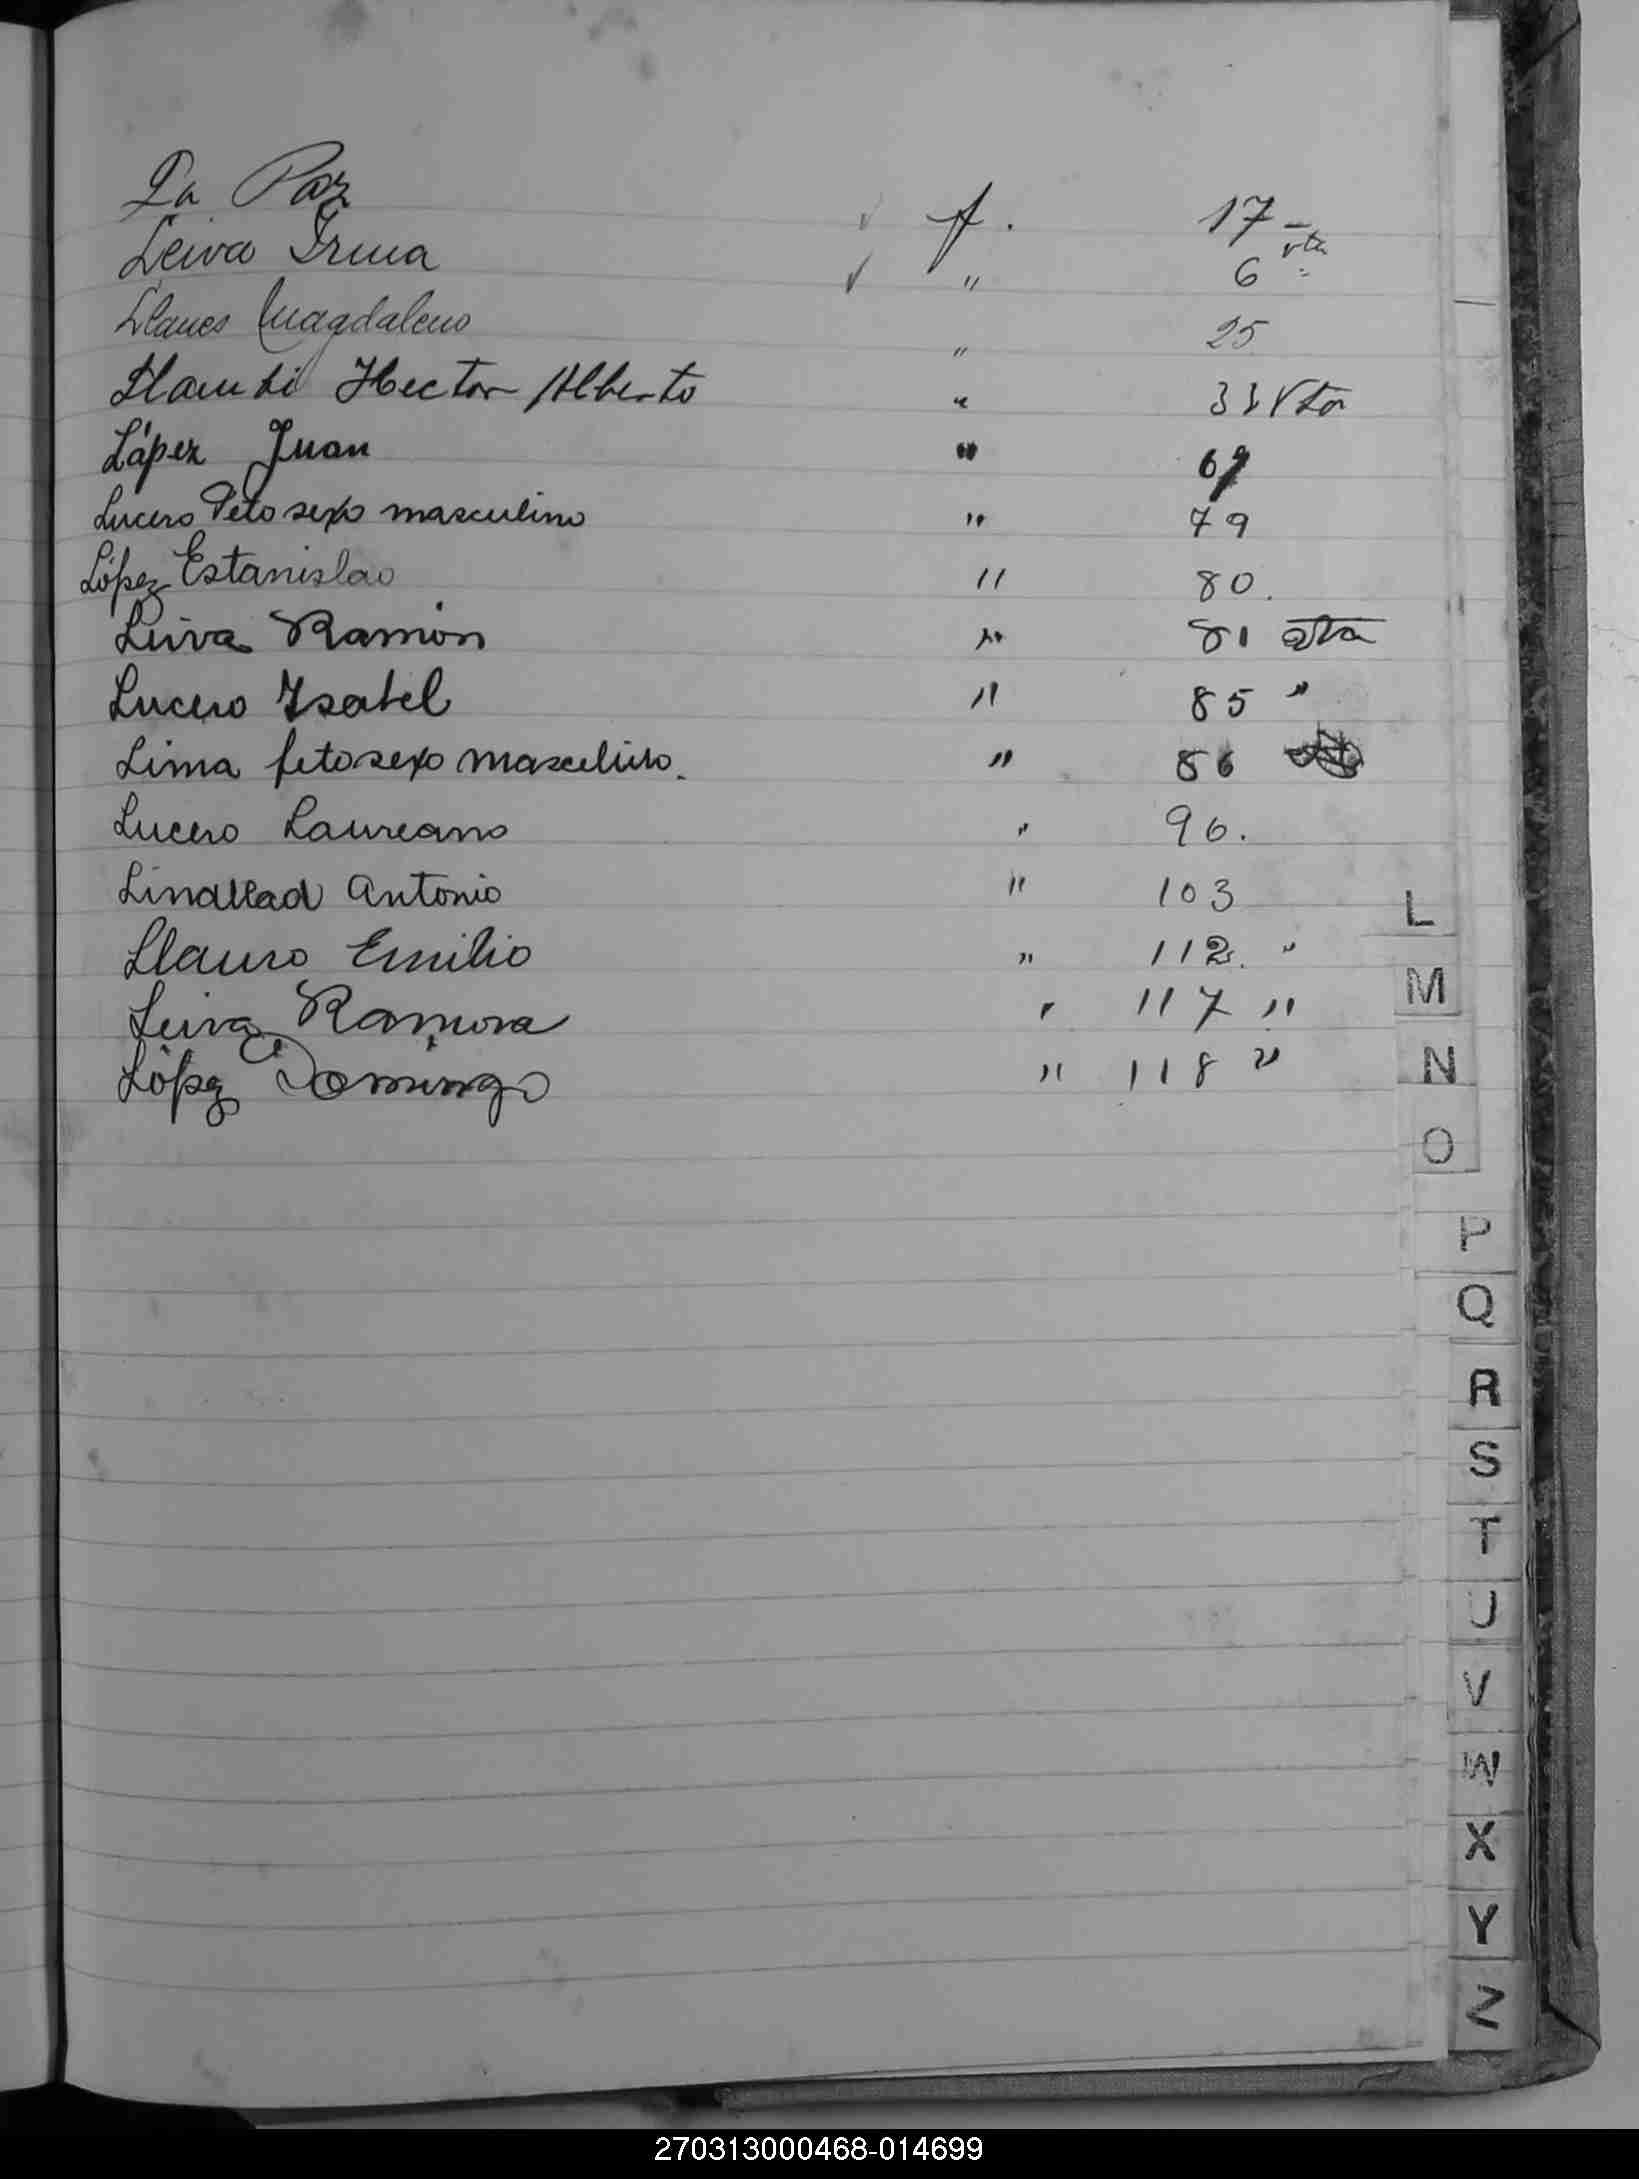 La Paz f. 17
Leiva Irma " 6 vta
Llanes Magdaleno " 25
Hector Alberto " 33 Vta
López Juan " 69
Lucero Feto sexo masculino " 79
López Estanislao " 80.
Leiva Ramón " 81 vta
Lucero Isabel " 85 "
Lima feto sexo masculino. " 86
Lucero Laureano " 96.
Lindblad Antonio " 103
Llauro Emilio " 112. "
Leiva Ramona " 117 "
López Domingo " 118 "
L
M
N
O
P
Q
R
S
T
U
V
W
X
Y
Z
270313000468-014699